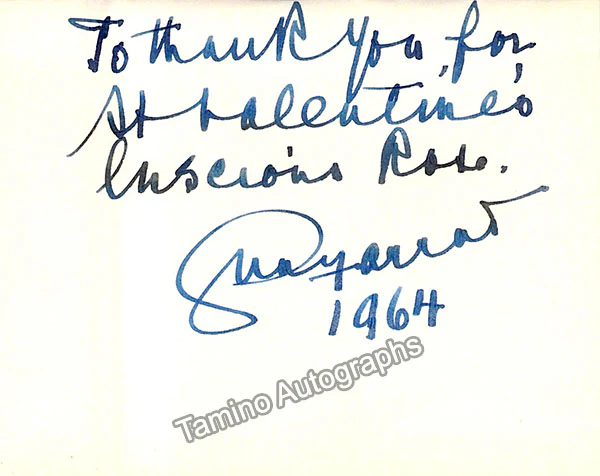 To thank you, for
St Valentine's
luscious Rose.
1964
Tamino Autographs